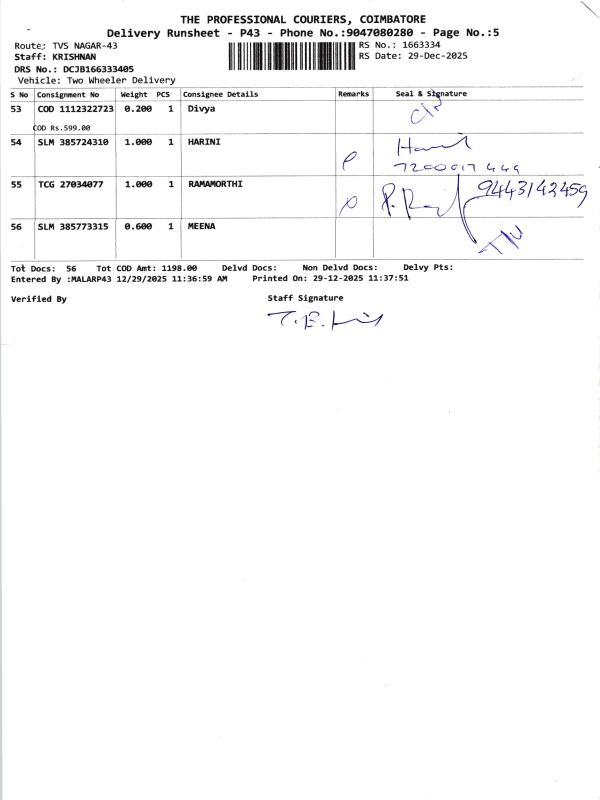 THE PROFESSIONAL COURIERS, COIMBATORE
Delivery Runsheet - P43 - Phone No.:9047080280 - Page No.:5
Route: TVS NAGAR-43 RS No.: 1663334
Staff: KRISHNAN RS Date: 29-Dec-2025
DRS No.: DCJB166333405
Vehicle: Two Wheeler Delivery
S No Consignment No Weight PCS Consignee Details Remarks Seal & Signature
53 COD 1112322723 0.200 1 Divya
COD Rs.599.00
54 SLM 385724310 1.000 1 HARINI
55 TCG 27034077 1.000 1 RAMAMORTHI 9443142459
56 SLM 385773315 0.600 1 MEENA
Tot Docs: 56 Tot COD Amt: 1198.00 Delvd Docs: Non Delvd Docs: Delvy Pts:
Entered By :MALARP43 12/29/2025 11:36:59 AM Printed On: 29-12-2025 11:37:51
Verified By Staff Signature